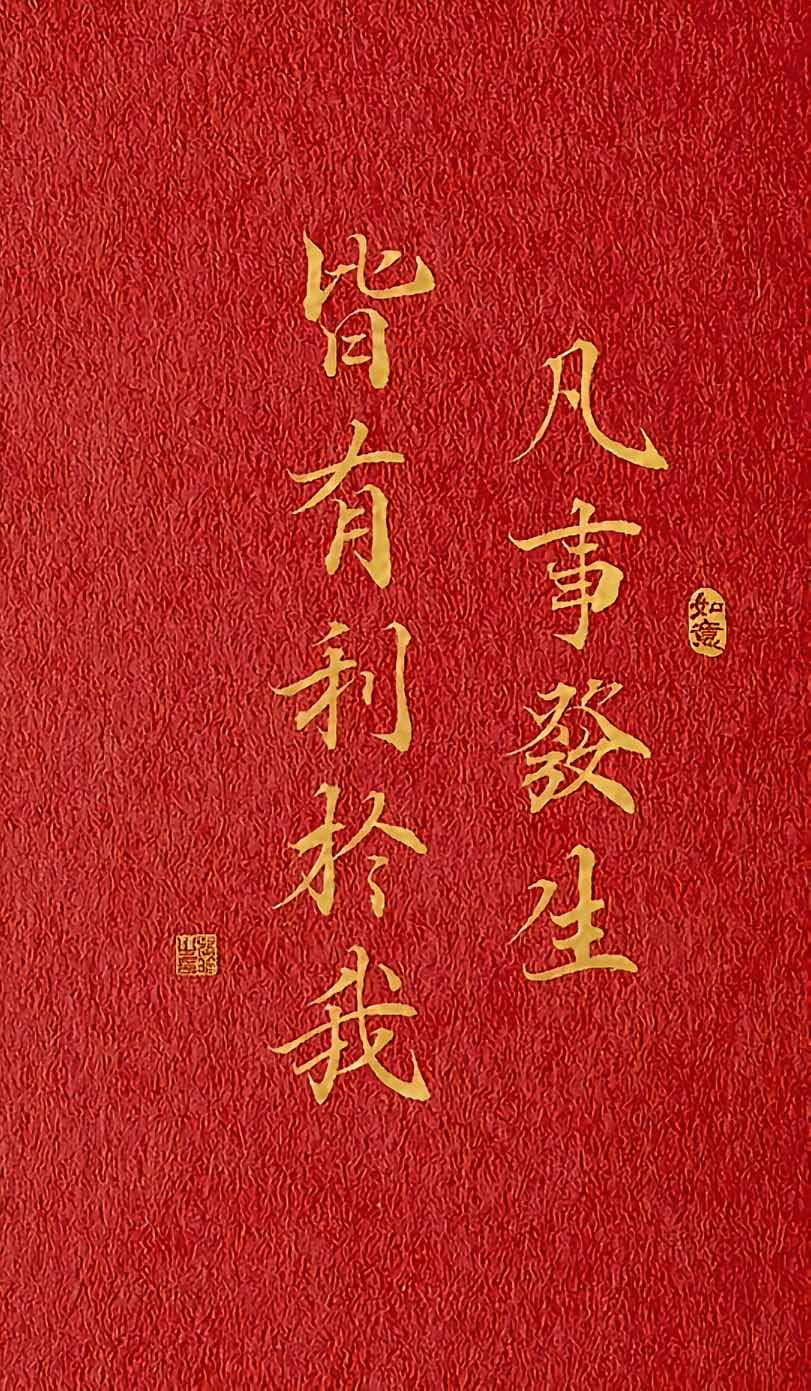 如意
凡事發生
皆有利於我